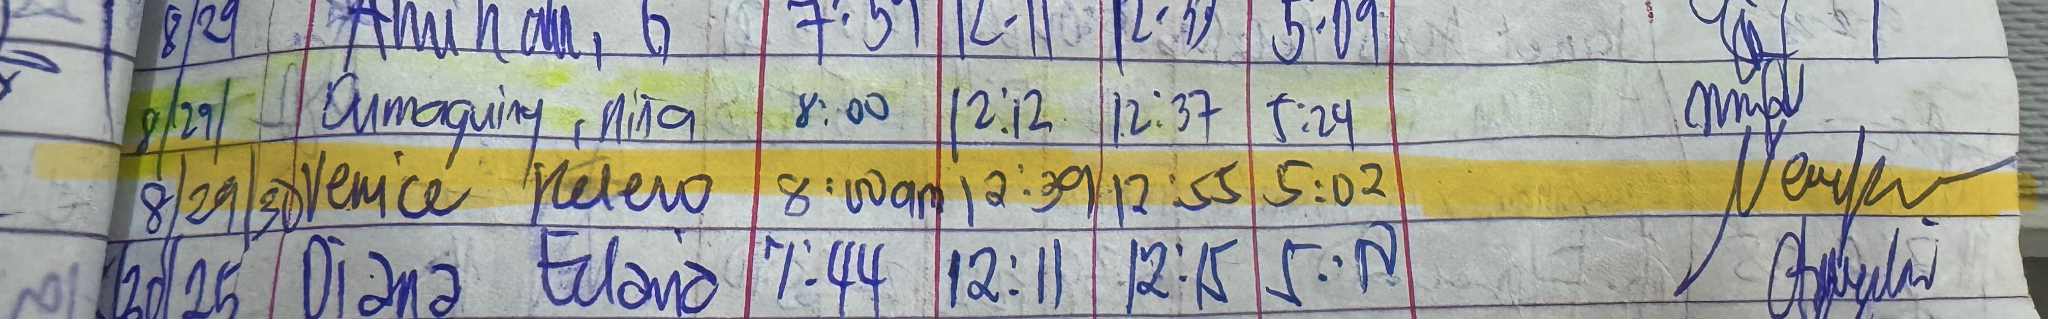 8/29 Aminan, G 7:59 12:11 12:59 5:09
8/29/ Dumaquing, Niña 8:00 12:12 12:37 5:24
8/29/30 Venice Relevo 8:00am 12:39 12:55 5:02
/20/25 Diana Edano 7:44 12:11 12:15